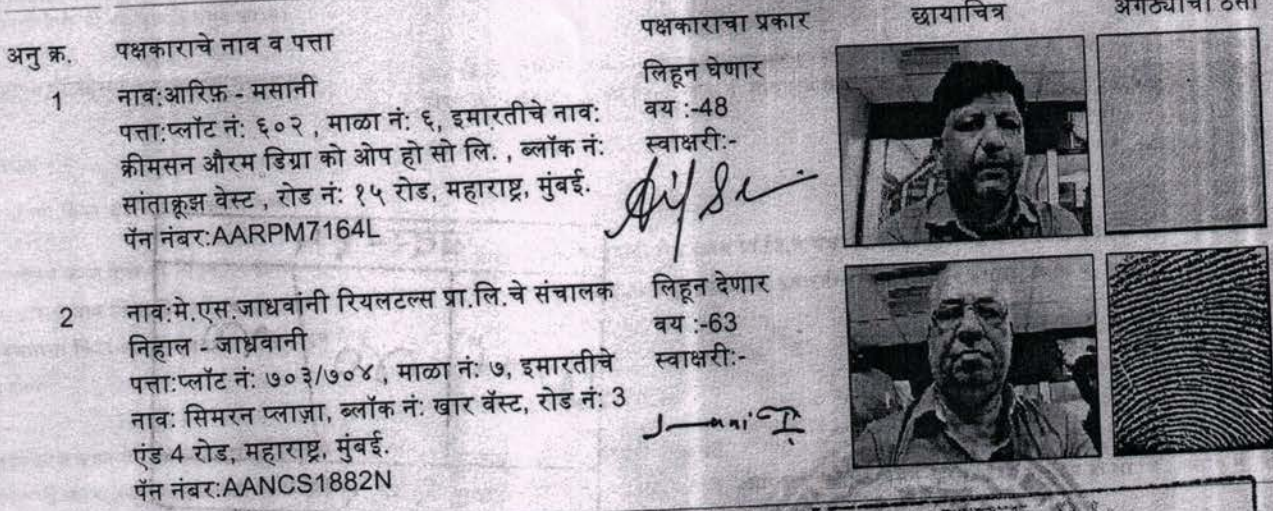 अनु क्र. पक्षकाराचे नाव व पत्ता पक्षकाराचा प्रकार छायाचित्र अंगठ्याचा ठसा
1 नाव:आरिफ़ - मसानी
पत्ता:प्लॉट नं: ६०२ , माळा नं: ६, इमारतीचे नाव:
क्रीमसन औरम डिग्रा को ओप हो सो लि. , ब्लॉक नं:
सांताक्रूझ वेस्ट , रोड नं: १५ रोड, महाराष्ट्र, मुंबई.
पॅन नंबर:AARPM7164L
लिहून घेणार
वय :-48
स्वाक्षरी:-
2 नाव:मे.एस.जाधवांनी रियलटल्स प्रा.लि.चे संचालक
निहाल - जाध्रवानी
पत्ता:प्लॉट नं: ७०३/७०४ , माळा नं: ७, इमारतीचे
नाव: सिमरन प्लाज़ा, ब्लॉक नं: खार वॅस्ट, रोड नं: 3
एंड 4 रोड, महाराष्ट्र, मुंबई.
पॅन नंबर:AANCS1882N
लिहून देणार
वय :-63
स्वाक्षरी:-